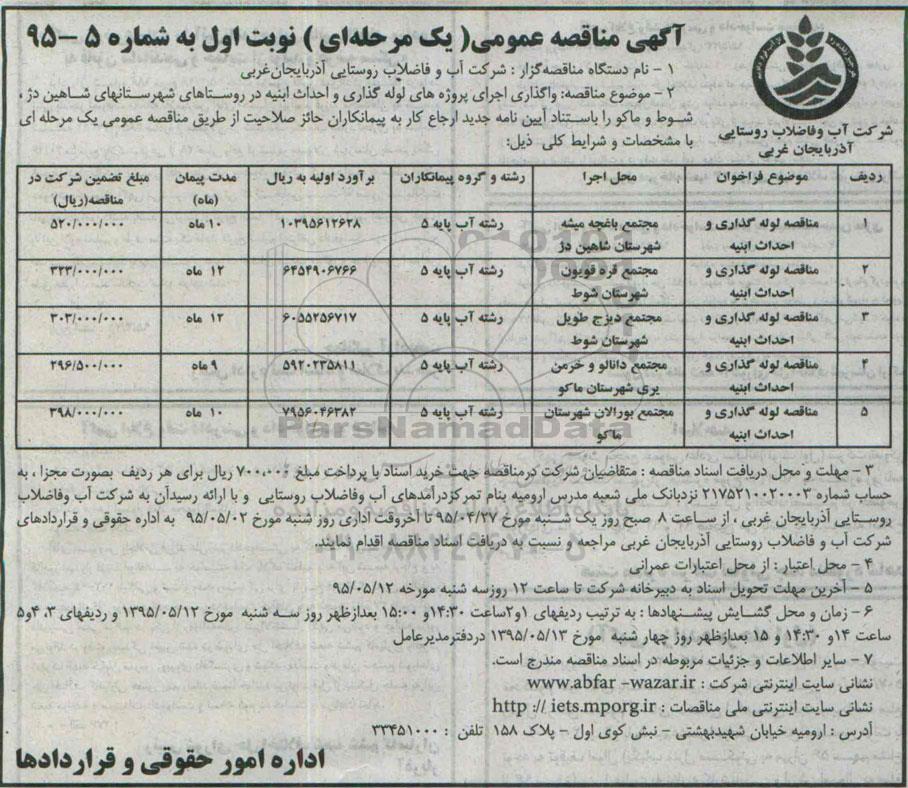 آگهی مناقصه عمومی( یک مرحله‌ای ) نوبت اول به شماره ۵ – ۹۵
شرکت آب و فاضلاب روستایی
آذربایجان غربی
۱ - نام دستگاه مناقصه‌گزار : شرکت آب و فاضلاب روستایی آذربایجان‌غربی
۲ - موضوع مناقصه: واگذاری اجرای پروژه های لوله گذاری و احداث ابنیه در روستاهای شهرستانهای شاهین دژ ،
شوط و ماکو را باستناد آیین نامه جدید ارجاع کار به پیمانکاران حائز صلاحیت از طریق مناقصه عمومی یک مرحله ای
با مشخصات و شرایط کلی ذیل:
ردیف موضوع فراخوان محل اجرا رشته و گروه پیمانکاران برآورد اولیه به ریال مدت پیمان (ماه) مبلغ تضمین شرکت در مناقصه(ریال)
۱ مناقصه لوله گذاری و احداث ابنیه مجتمع باغچه میشه شهرستان شاهین دژ رشته آب پایه ۵ ۱۰۳۹۵۶۱۲۶۲۸ ۱۰ ماه ۵۲۰/۰۰۰/۰۰۰
۲ مناقصه لوله گذاری و احداث ابنیه مجتمع قره قویون شهرستان شوط رشته آب پایه ۵ ۶۴۵۴۹۰۶۷۶۶ ۱۲ ماه ۳۲۳/۰۰۰/۰۰۰
۳ مناقصه لوله گذاری و احداث ابنیه مجتمع دیزج طویل شهرستان شوط رشته آب پایه ۵ ۶۰۵۵۲۵۶۷۱۷ ۱۲ ماه ۳۰۳/۰۰۰/۰۰۰
۴ مناقصه لوله گذاری و احداث ابنیه مجتمع دانالو و خرمن یری شهرستان ماکو رشته آب پایه ۵ ۵۹۲۰۲۳۵۸۱۱ ۹ ماه ۲۹۶/۵۰۰/۰۰۰
۵ مناقصه لوله گذاری و احداث ابنیه مجتمع بورالان شهرستان ماکو رشته آب پایه ۵ ۷۹۵۶۰۴۶۳۸۲ ۱۰ ماه ۳۹۸/۰۰۰/۰۰۰
ParsNamadData
۳ - مهلت و محل دریافت اسناد مناقصه : متقاضیان شرکت درمناقصه جهت خرید اسناد با پرداخت مبلغ ۷۰۰,۰۰۰ ریال برای هر ردیف بصورت مجزا ، به
حساب شماره ۲۱۷۵۲۱۰۰۲۰۰۰۳ نزدبانک ملی شعبه مدرس ارومیه بنام تمرکزدرآمدهای آب وفاضلاب روستایی و با ارائه رسیدآن به شرکت آب وفاضلاب
روستایی آذربایجان غربی ، از ساعت ۸ صبح روز یک شنبه مورخ ۹۵/۰۴/۲۷ تا آخروقت اداری روز شنبه مورخ ۹۵/۰۵/۰۲ به اداره حقوقی و قراردادهای
شرکت آب و فاضلاب روستایی آذربایجان غربی مراجعه و نسبت به دریافت اسناد مناقصه اقدام نمایند.
۴ - محل اعتبار : از محل اعتبارات عمرانی
۵ - آخرین مهلت تحویل اسناد به دبیرخانه شرکت تا ساعت ۱۲ روزسه شنبه مورخه ۹۵/۰۵/۱۲
۶ - زمان و محل گشایش پیشنهادها : به ترتیب ردیفهای ۱و۲ساعت ۱۴:۳۰و ۱۵:۰۰ بعدازظهر روز سه شنبه مورخ ۱۳۹۵/۰۵/۱۲ و ردیفهای ۳، ۴و۵
ساعت ۱۴و ۱۴:۳۰ و ۱۵ بعدازظهر روز چهار شنبه مورخ ۱۳۹۵/۰۵/۱۳ دردفترمدیرعامل
۷ - سایر اطلاعات و جزئیات مربوطه در اسناد مناقصه مندرج است.
نشانی سایت اینترنتی شرکت : www.abfar -wazar.ir
نشانی سایت اینترنتی ملی مناقصات : http :// iets.mporg.ir
آدرس : ارومیه خیابان شهیدبهشتی - نبش کوی اول - پلاک ۱۵۸ تلفن : ۳۳۴۵۱۰۰۰
اداره امور حقوقی و قراردادها